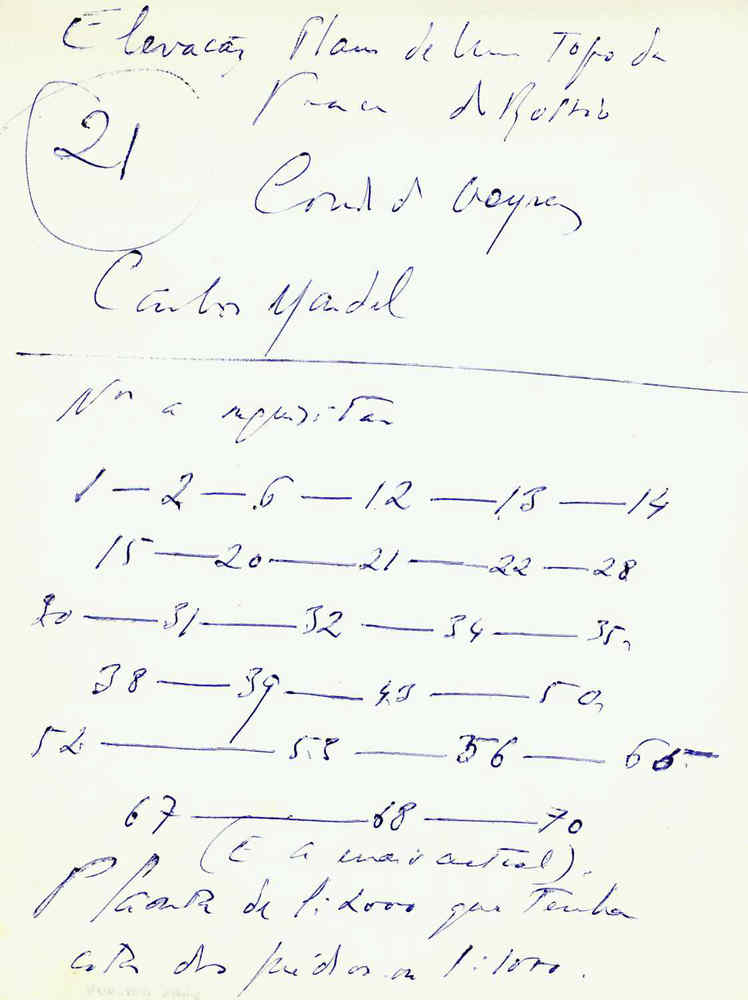 Elevação Plano de Um Topo da
Praça do Rossio
21
Conde d'Oeyras
Carlos Mardel
Nos a requisitar
1 — 2 — 6 — 12 — 13 — 14
15 — 20 — 21 — 22 — 28
30 — 31 — 32 — 34 — 35,
38 — 39 — 43 — 50,
52 — 53 — 56 — 65 —
67 — 68 — 70
(E a mais actual).
Planta de 1:2000 que Tenha
cotas dos prédios ou 1:1000.